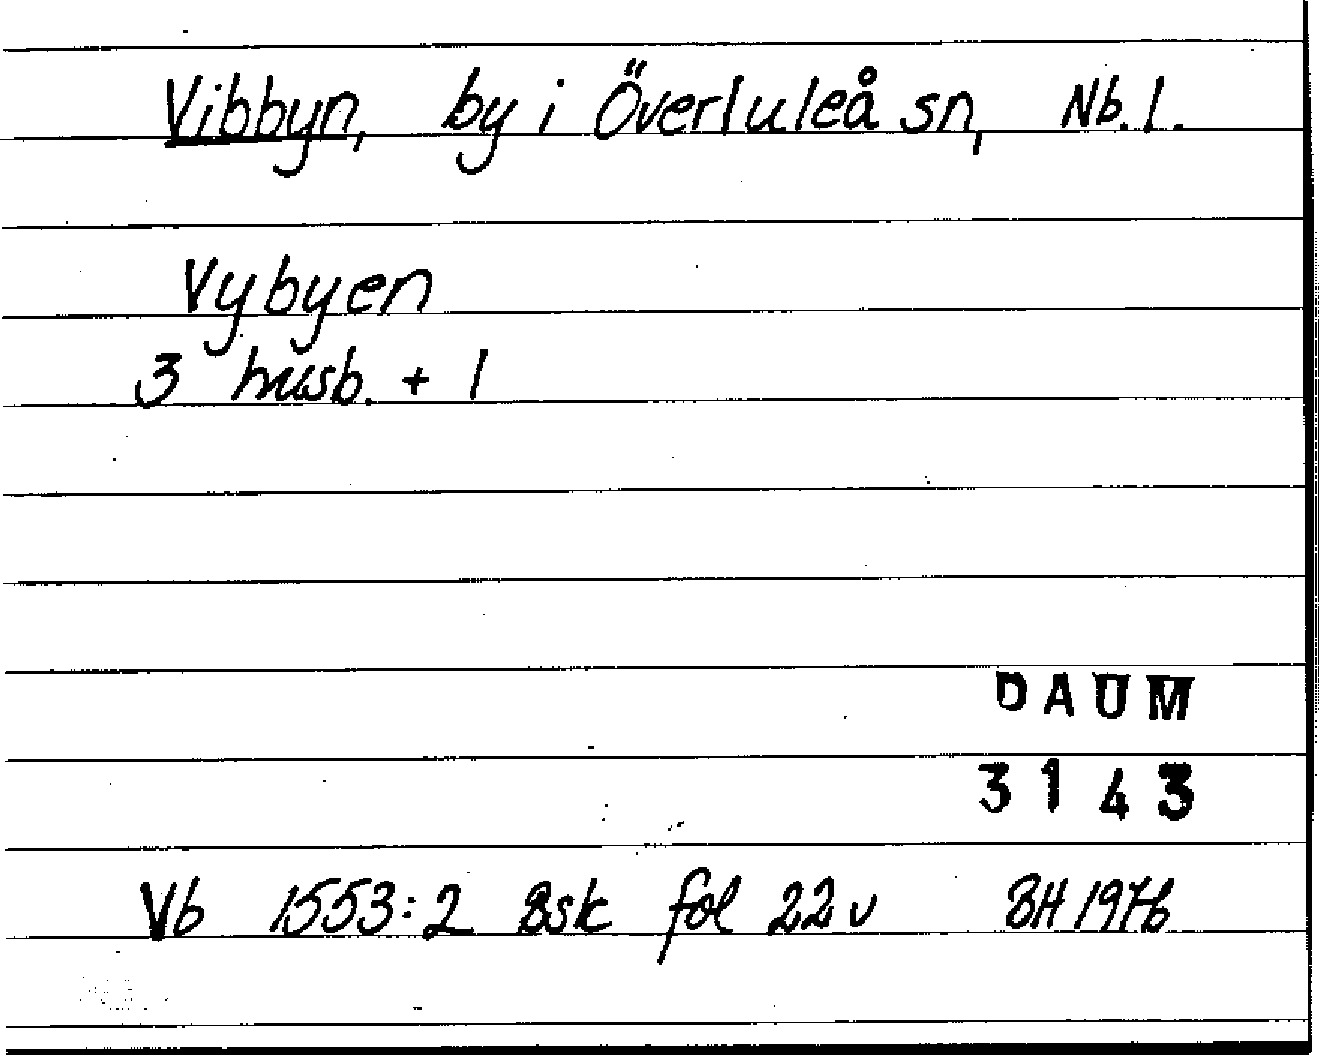 Vibbyn, by i Överluleå sn, Nb. l.
Vybyen
3 husb. + 1
DAUM
3143
Vb 1553:2 Bsk fol 22 v BH 1976